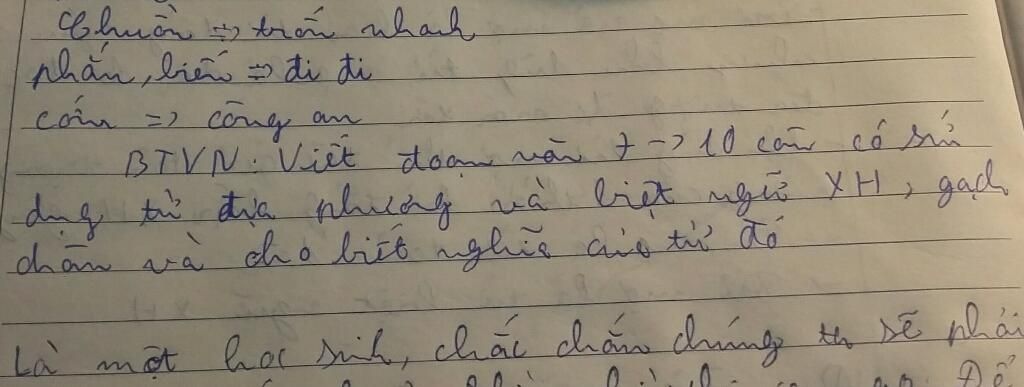 Chuồn => trốn nhanh
phắn, biến => đi đi
cớm => công an
BTVN: Viết đoạn văn 7 -> 10 câu có sử
dụng từ địa phương và biệt ngữ XH, gạch
chân và cho biết nghĩa của từ đó
Là một học sinh, chắc chắn chúng ta sẽ phải